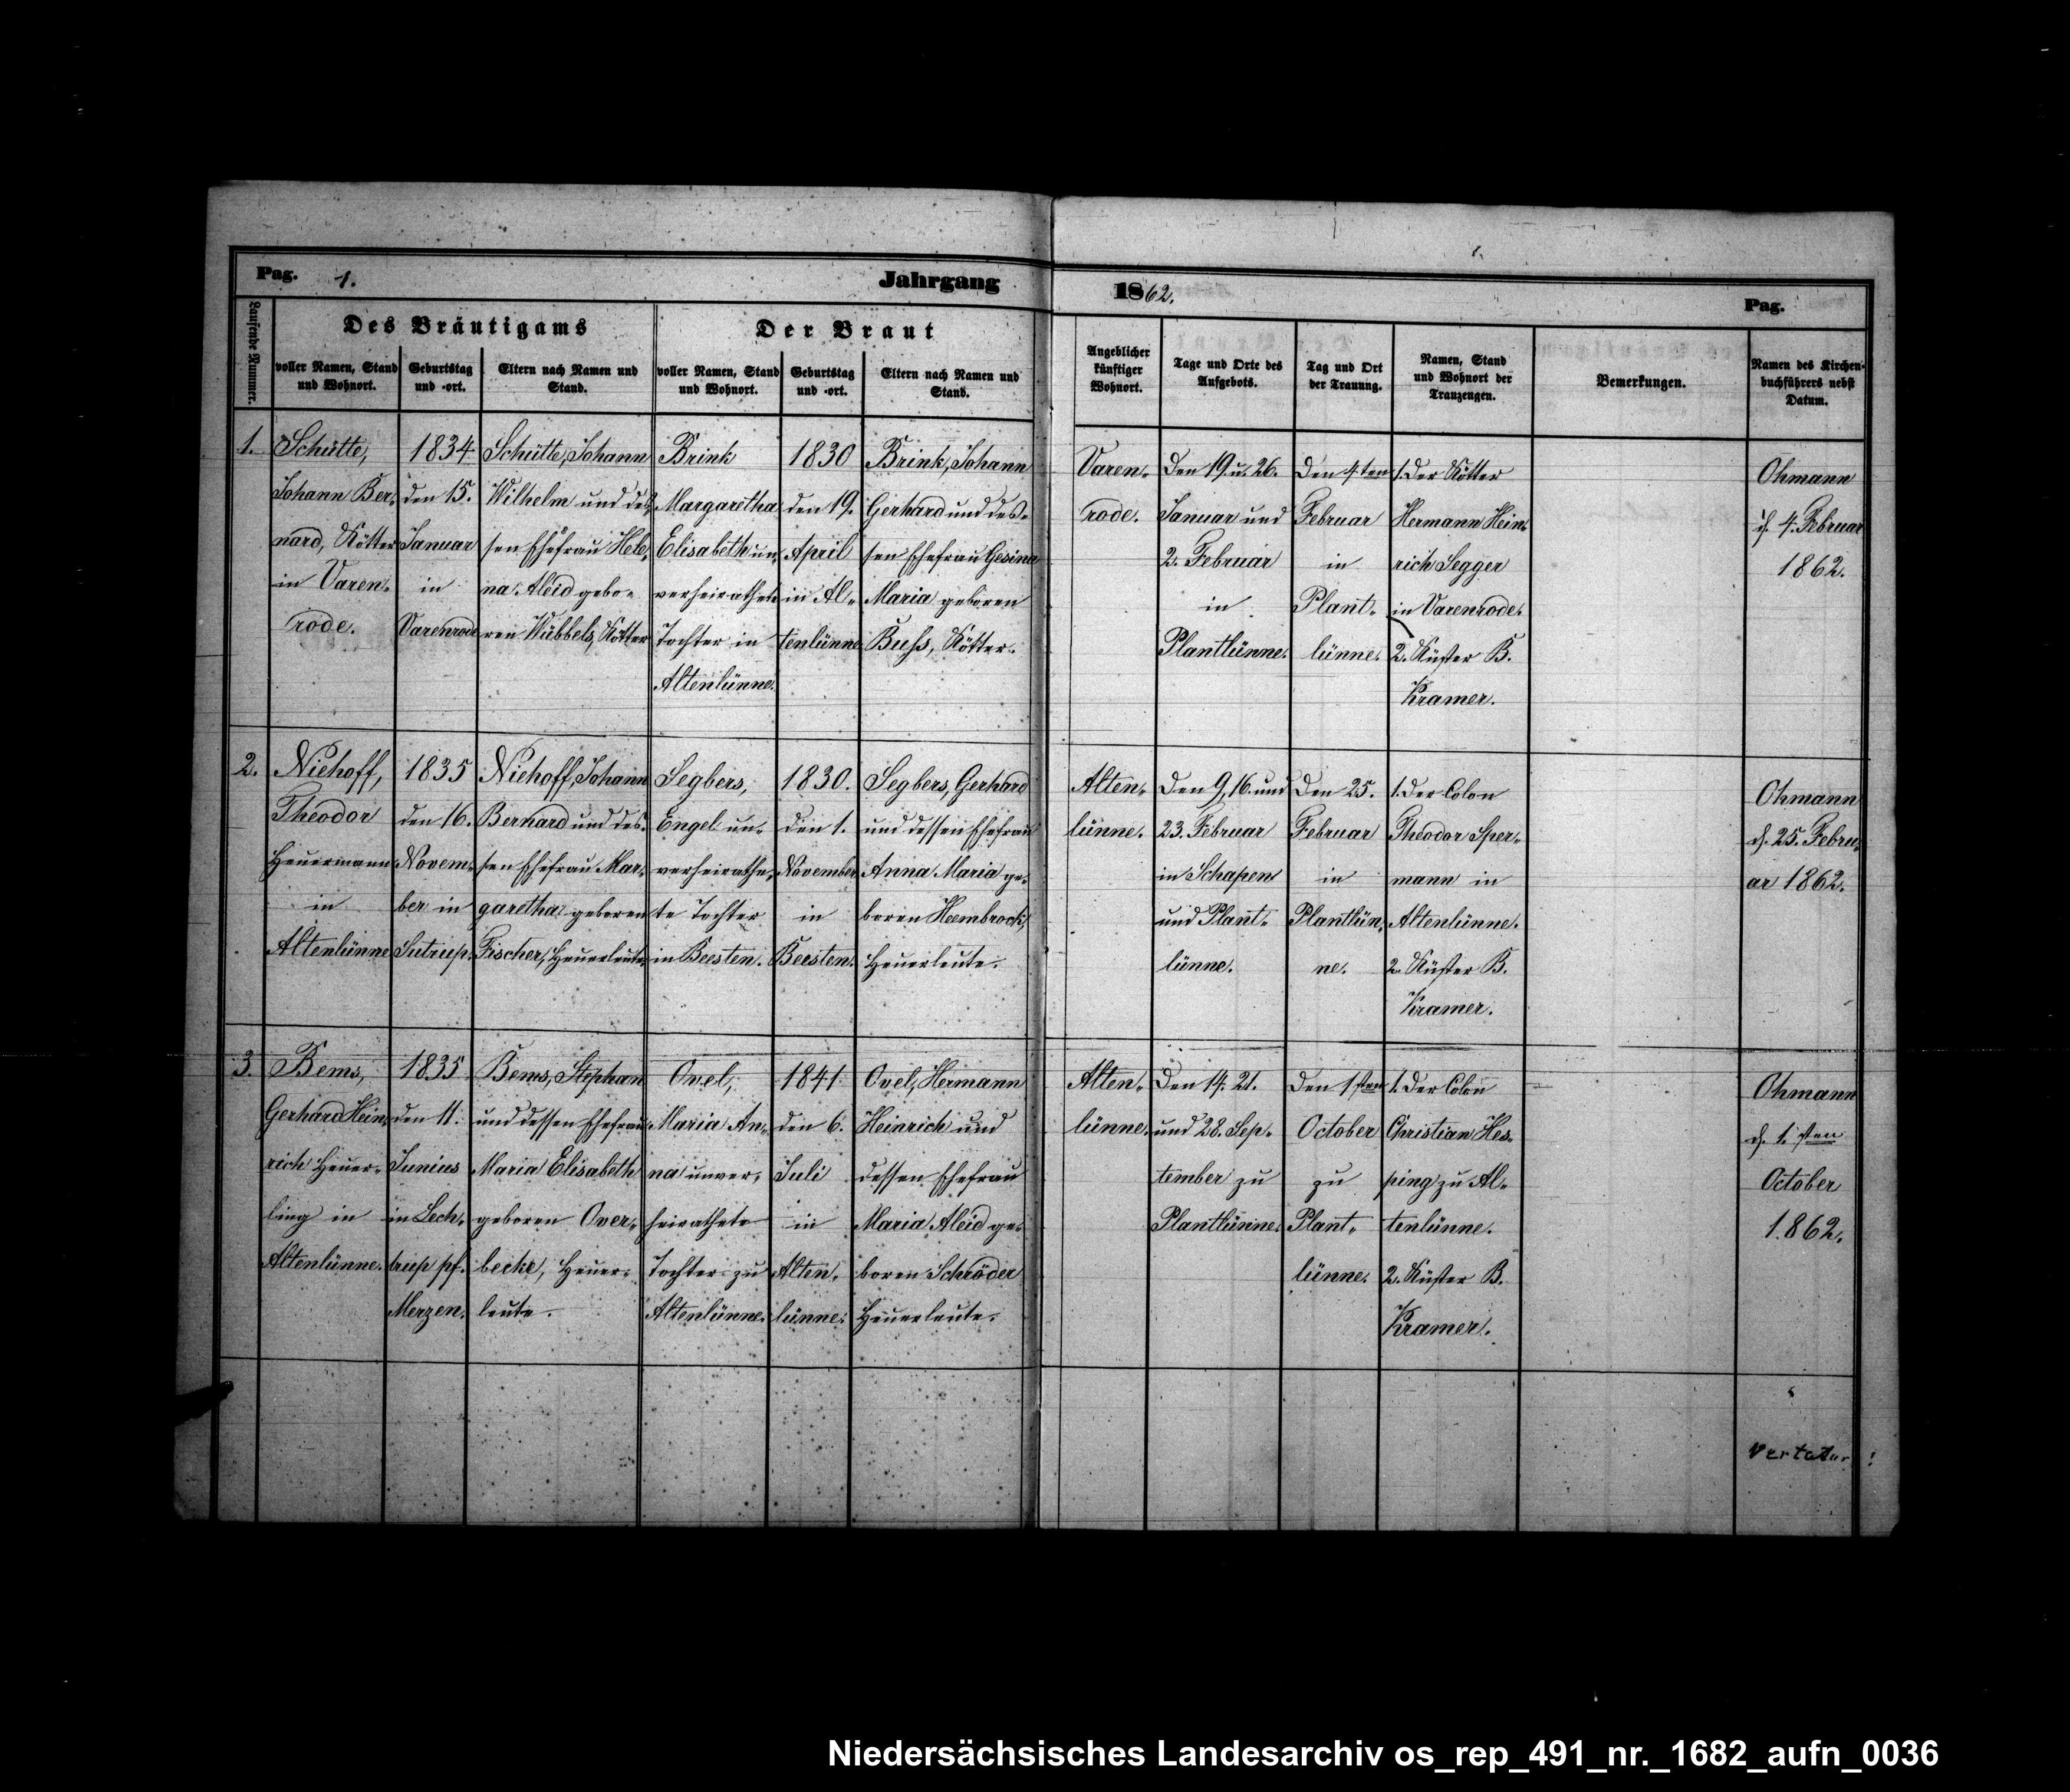 Pag. 1.
Jahrgang
1862.
Pag.
Laufende Nummer.
Des Bräutigams
voller Namen, Stand
und Wohnort.
Geburtstag
und -ort.
Eltern nach Namen und
Stand.
Der Braut
voller Namen, Stand
und Wohnort.
Geburtstag
und -ort.
Eltern nach Namen und
Stand.
Angeblicher
künftiger
Wohnort.
Tage und Orte des
Aufgebots.
Tag und Ort
der Trauung.
Namen, Stand
und Wohnort der
Trauzeugen.
Bemerkungen.
Namen des Kirchen-
buchführers nebst
Datum.
1.
Schütte,
Johann Ber-
nard, Kötter
in Varen-
rode.
1834
den 15.
Januar
in
Varenrode
Schütte, Johann
Wilhelm und des-
sen Ehefrau Hele-
na Aleid gebo-
ren Wübbels, Kötter
Brink
Margaretha
Elisabeth un-
verheirathete
Tochter in
Altenlünne.
1830
den 19.
April
in Al-
tenlünne
Brink, Johann
Gerhard und des-
sen Ehefrau Gesina
Maria geboren
Buss, Kötter.
Varen-
rode.
Den 19. u. 26.
Januar und
2. Februar
in
Plantlünne.
Den 4ten
Februar
in
Plant-
lünne.
1. Der Kötter
Hermann Hein-
rich Segger
in Varenrode.
2. Küster B.
Kramer.
Ohmann
d. 4. Februar
1862.
2.
Niehoff,
Theodor
Heuermann
in
Altenlünne
1835
den 16.
Novem-
ber in
Sutrup.
Niehoff, Johann
Bernard und des-
sen Ehefrau Mar-
garetha geboren
Fischer, Heuerleute
Segbers,
Engel un-
verheirathe-
te Tochter
in Beesten.
1830.
den 1.
November
in
Beesten.
Segbers, Gerhard
und dessen Ehefrau
Anna Maria ge-
boren Heembrock,
Heuerleute.
Alten-
lünne.
Den 9, 16. und
23. Februar
in Schapen
und Plant-
lünne.
Den 25.
Februar
in
Plantlün-
ne.
1. Der Colon
Theodor Sper-
mann in
Altenlünne.
2. Küster B.
Kramer.
Ohmann
d. 25. Febru-
ar 1862.
3.
Bems,
Gerhard Hein-
rich Heuer-
ling in
Altenlünne.
1835
den 11.
Junius
in Lech-
trup pf.
Merzen.
Bems, Stephan
und dessen Ehefrau
Maria Elisabeth
geboren Over-
becke, Heuer-
leute.
Ovel,
Maria An-
na unver-
heirathete
Tochter zu
Altenlünne.
1841
den 6.
Juli
in
Alten-
lünne.
Ovel, Hermann
Heinrich und
dessen Ehefrau
Maria Aleid ge-
boren Schröder
Heuerleute.
Alten-
lünne.
Den 14. 21.
und 28. Sep-
tember zu
Plantlünne.
Den 1sten
October
zu
Plant-
lünne.
1. Der Colon
Christian Hes-
ping zu Al-
tenlünne.
2. Küster B.
Kramer.
Ohmann
d. 1sten
October
1862.
Vertatur!
Niedersächsisches Landesarchiv os_rep_491_nr._1682_aufn_0036